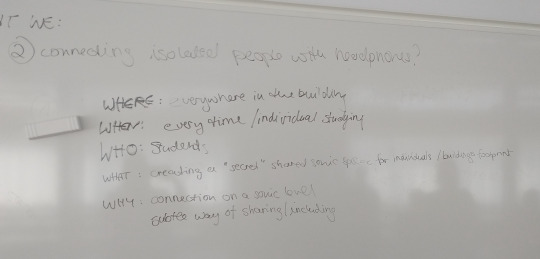 WE:
② connecting isolated people with headphones?
WHERE: everywhere in the building
WHEN: every time / individual studying
WHO: Students
WHAT: creating a "secret" shared sonic space for individuals / buildings footprint
WHY: connection on a sonic level
subtle way of sharing/including